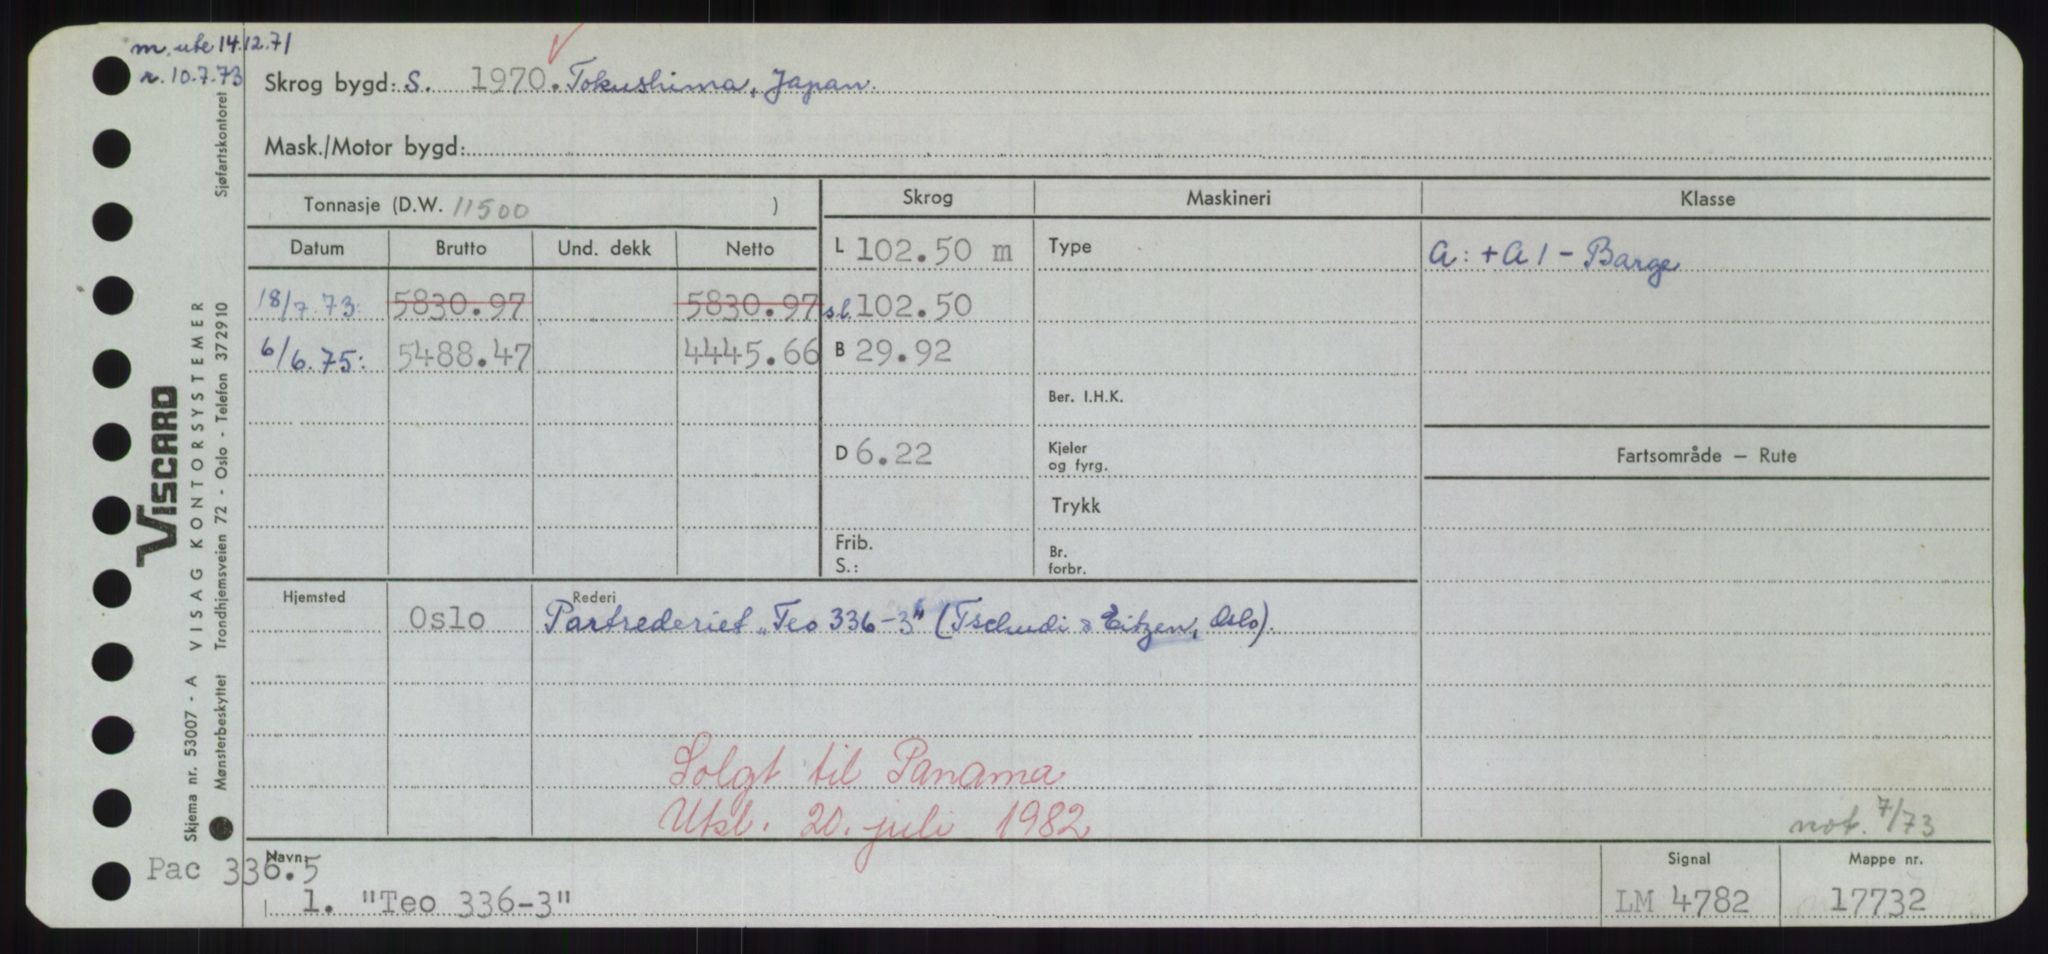 m. ute 14.12.71
r. 10.7.73
Skrog bygd: S. 1970. Tokushima, Japan.
Mask./Motor bygd:
Tonnasje (D.W. 11500 )
Skrog Maskineri Klasse
Datum Brutto Und. dekk Netto
L 102.50 m Type A: +A1 - Barge
18/7.73: 5830.97 5830.97 sl. 102.50
6/6.75: 5488.47 4445.66 B 29.92
Ber. I.H.K.
D 6.22 Kjeler og fyrg. Fartsområde – Rute
Trykk
Frib. S.: Br. forbr.
Hjemsted Oslo Rederi Partrederiet „Teo 336-3" (Tschudi & Eitzen, Oslo).
Solgt til Panama
Utsl. 20. juli 1982
not. 7/73
Pac 336.5
Navn:
1. "Teo 336-3"
Signal LM 4782
Mappe nr. 17732
VISCARD
VISAG KONTORSYSTEMER
Skjema nr. 53007 - A
Mønsterbeskyttet Trondhjemsveien 72 - Oslo - Telefon 372910
Sjøfartskontoret